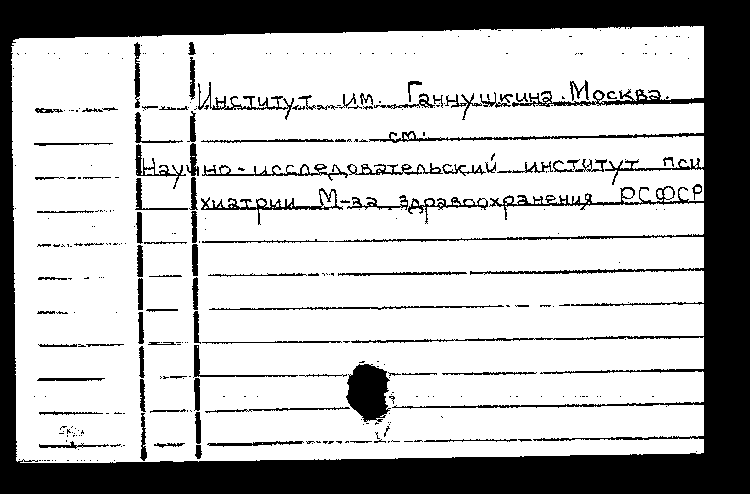 Институт им. Ганнушкина. Москва.
см.
Научно-исследовательский институт пси
хиатрии М-ва здравоохранения РСФСР